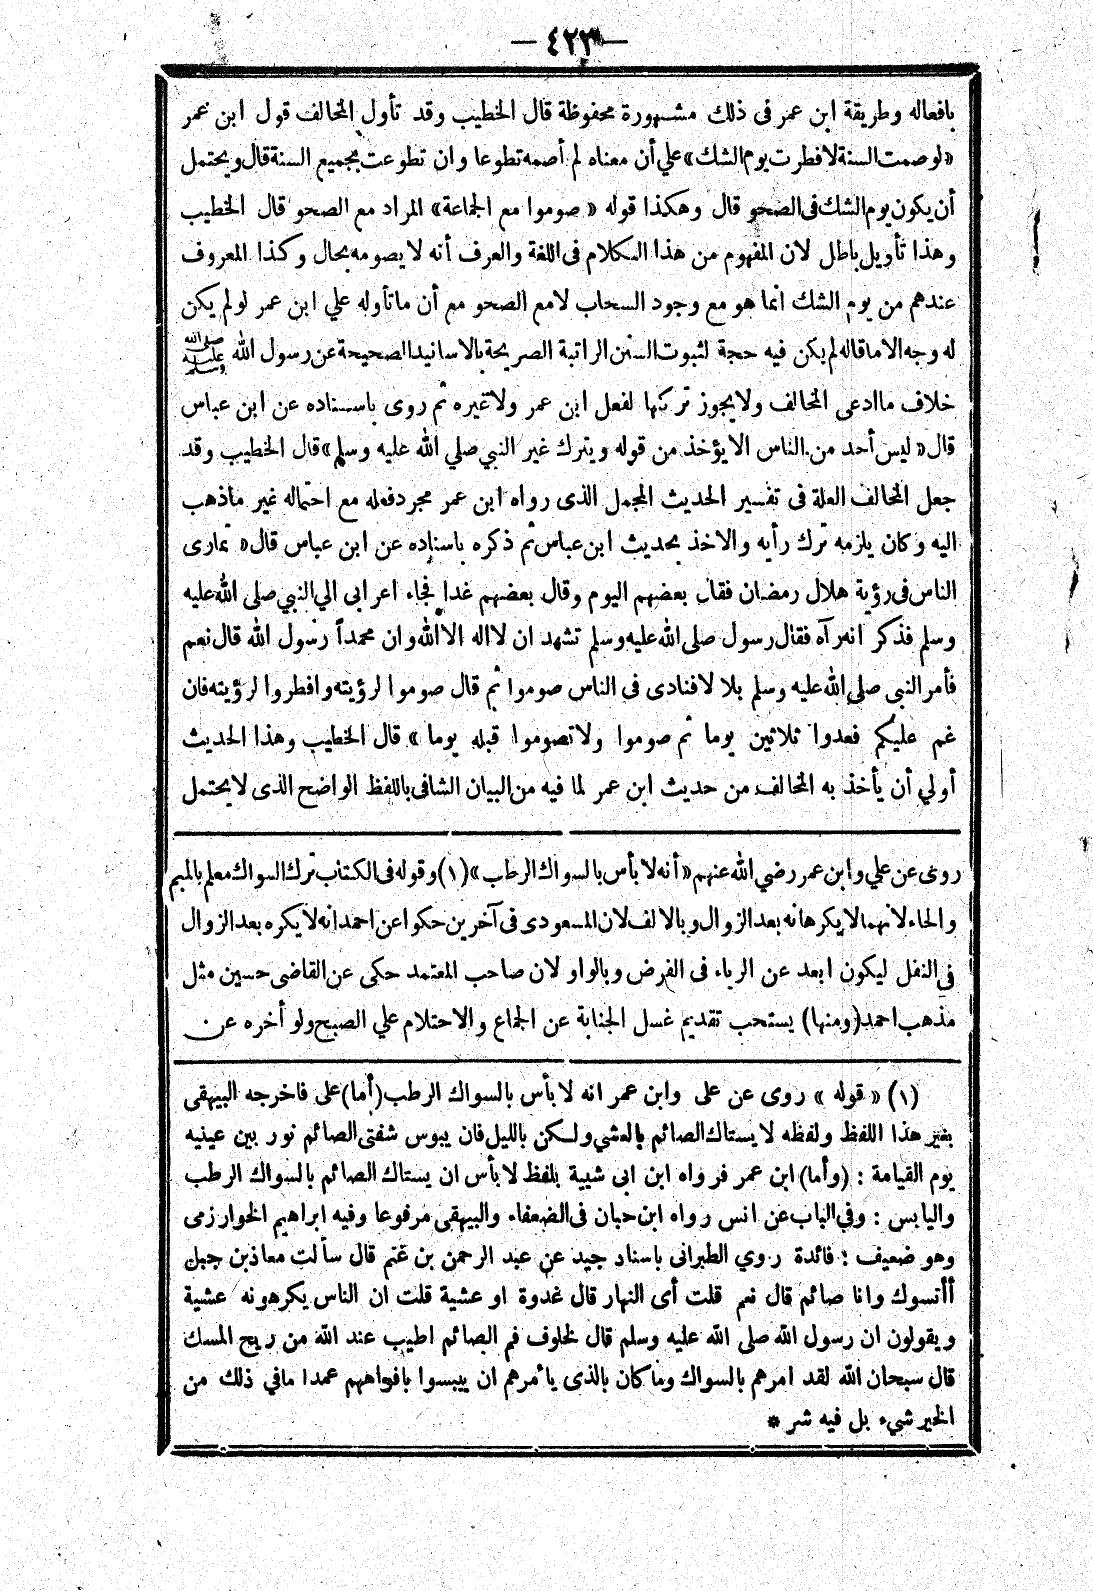 — ٤٢٣ —
بافعاله وطريقة ابن عمر فى ذلك مشهورة محفوظة قال الخطيب وقد تأول المخالف قول ابن عمر
«لو صمت السنة لافطرت يوم الشك» علي أن معناه لم أصمه تطوعا وان تطوعت بجميع السنة قال ويحتمل
أن يكون يوم الشك فى الصحو قال وهكذا قوله « صوموا مع الجماعة» المراد مع الصحو قال الخطيب
وهذا تأويل باطل لان المفهوم من هذا الكلام فى اللغة والعرف أنه لا يصومه بحال وكذا المعروف
عندهم من يوم الشك انما هو مع وجود السحاب لامع الصحو مع أن ماتأوله علي ابن عمر لو لم يكن
له وجه الا ماقاله لم يكن فيه حجة لثبوت السنن الراتبة الصريحة بالاسانيد الصحيحة عن رسول الله صلى الله عليه وسلم
خلاف ماادعى المخالف ولايجوز تركها لفعل ابن عمر ولاغيره ثم روى باسناده عن ابن عباس
قال « ليس أحد من الناس الا يؤخذ من قوله ويترك غير النبي صلي الله عليه وسلم» قال الخطيب وقد
جعل المخالف العلة فى تفسير الحديث المجمل الذى رواه ابن عمر مجرد فعله مع احتماله غير ماذهب
اليه وكان يلزمه ترك رأيه والاخذ بحديث ابن عباس ثم ذكره باسناده عن ابن عباس قال « تمارى
الناس فى رؤية هلال رمضان فقال بعضهم اليوم وقال بعضهم غدا فجاء اعرابى الي النبي صلى الله عليه
وسلم فذكر انه رآه فقال رسول صلى الله عليه وسلم تشهد ان لااله الا الله وان محمداً رسول الله قال نعم
فأمر النبى صلي الله عليه وسلم بلالا فنادى فى الناس صوموا ثم قال صوموا لرؤيته وافطروا لرؤيته فان
غم عليكم فعدوا ثلاثين يوما ثم صوموا ولاتصوموا قبله يوما » قال الخطيب وهذا الحديث
أولي أن يأخذ به المخالف من حديث ابن عمر لما فيه من البيان الشافى باللفظ الواضح الذى لايحتمل
روى عن علي وابن عمر رضي الله عنهم « أنه لا بأس بالسواك الرطب » (١) وقوله فى الكتاب ترك السواك معلم بالميم
والحاء لانهما لا يكرهانه بعد الزوال وبالالف لان المسعودى فى آخرين حكوا عن احمد انه لا يكره بعد الزوال
فى النفل ليكون ابعد عن الرياء فى الفرض وبالواو لان صاحب المعتمد حكى عن القاضى حسين مثل
مذهب احمد (ومنها) يستحب تقديم غسل الجنابة عن الجماع والاحتلام علي الصبح ولو أخره عن
(١) « قوله » روى عن على وابن عمر انه لا بأس بالسواك الرطب (أما) على فاخرجه البيهقى
بغير هذا اللفظ ولفظه لا يستاك الصائم بالعشي ولكن بالليل فان يبوس شفتى الصائم نور بين عينيه
يوم القيامة : (وأما) ابن عمر فرواه ابن ابى شيبة بلفظ لا بأس ان يستاك الصائم بالسواك الرطب
واليابس : وفي الباب عن انس رواه ابن حبان فى الضعفاء والبيهقى مرفوعا وفيه ابراهيم الخوارزمى
وهو ضعيف : فائدة روي الطبرانى باسناد جيد عن عبد الرحمن بن غنم قال سألت معاذ بن جبل
أأتسوك وانا صائم قال نعم قلت أى النهار قال غدوة او عشية قلت ان الناس يكرهونه عشية
ويقولون ان رسول الله صلى الله عليه وسلم قال لخلوف فم الصائم اطيب عند الله من ريح المسك
قال سبحان الله لقد امرهم بالسواك وما كان بالذى يأمرهم ان ييبسوا بافواههم عمدا مافي ذلك من
الخير شيء بل فيه شر *